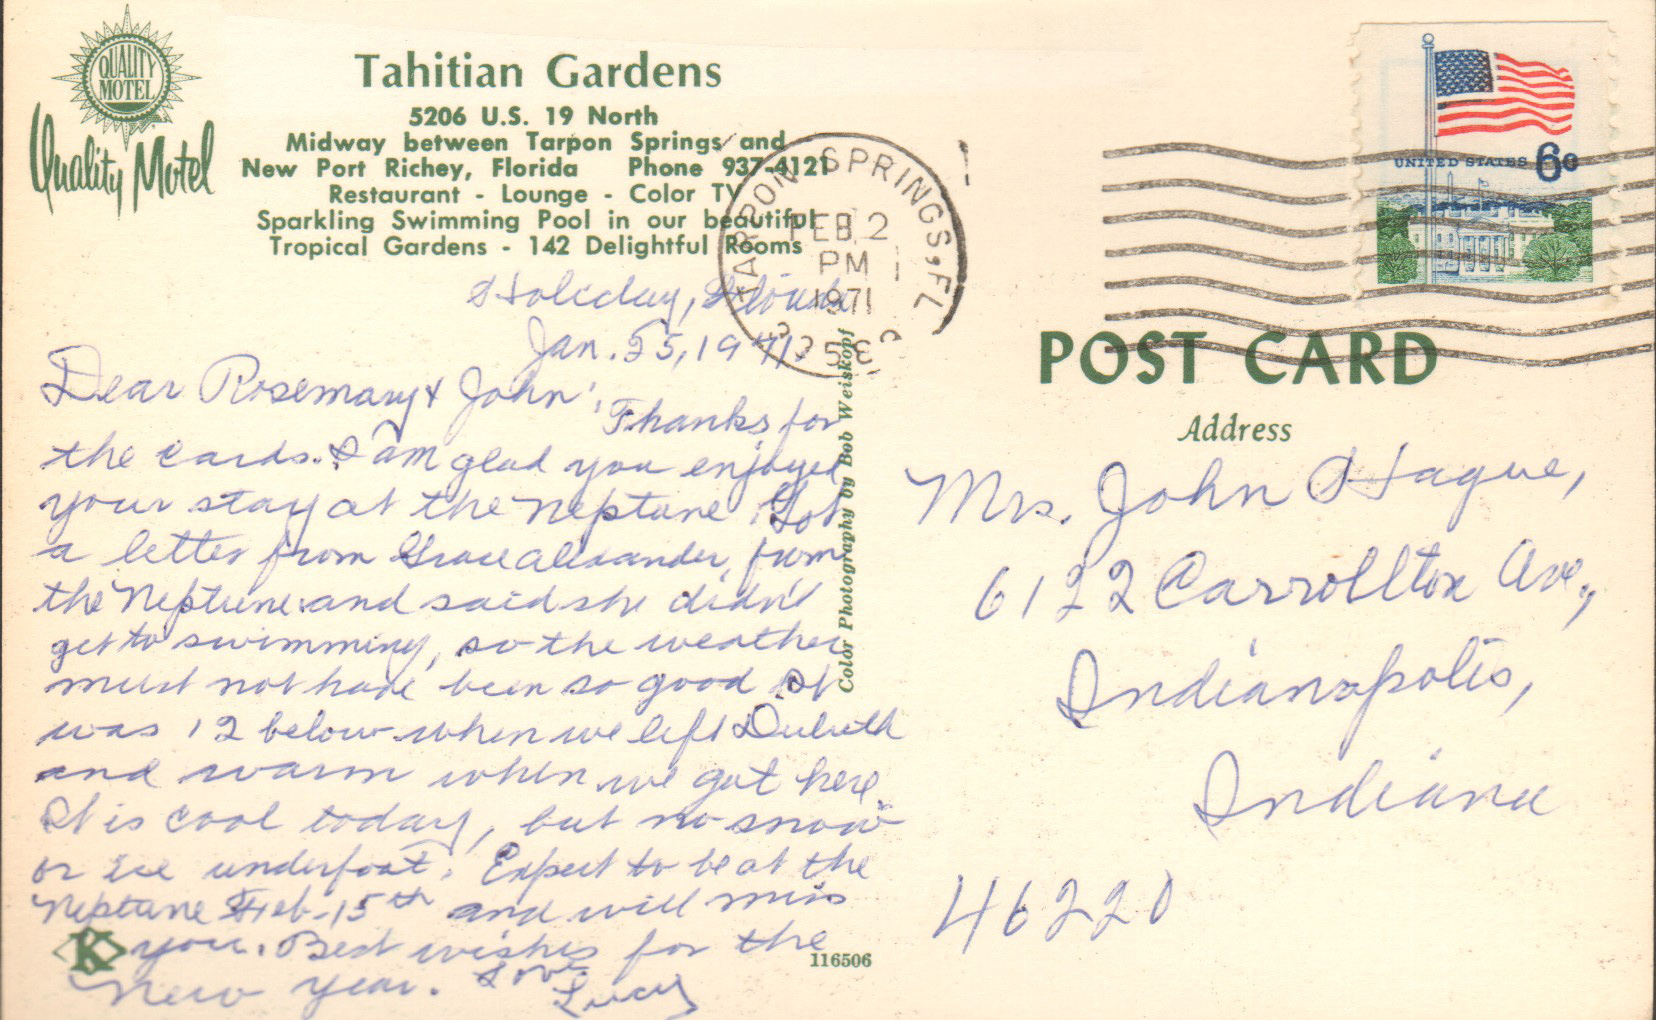 QUALITY
MOTEL
Quality Motel
Tahitian Gardens
5206 U.S. 19 North
Midway between Tarpon Springs and
New Port Richey, Florida Phone 937-4121
Restaurant - Lounge - Color TV
Sparkling Swimming Pool in our beautiful
Tropical Gardens - 142 Delightful Rooms
Holiday, Florida
Jan. 25, 1971
Dear Rosemary & John;
Thanks for
the cards. I am glad you enjoyed
your stay at the Neptune. Got
a letter from Grace Alexander, from
the Neptune and said she didn't
get to swimming, so the weather
must not have been so good. It
was 12 below when we left Duluth
and warm when we got here.
It is cool today, but no snow
or ice underfoot. Expect to be at the
Neptune Feb-15th and will miss
you. Best wishes for the
New Year. Love
Lucy
K
116506
Color Photography by Bob Weiskopf
TARPON SPRINGS, FL
FEB 2
PM
1971
UNITED STATES 6c
POST CARD
Address
Mrs. John Hague,
6122 Carrollton Ave.,
Indianapolis,
Indiana
46220